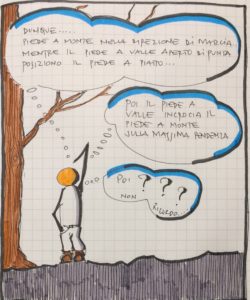 DUNQUE.....
PIEDE A MONTE NELLA DIREZIONE DI MARCIA
MENTRE IL PIEDE A VALLE APERTO DI PUNTA
POSIZIONO IL PIEDE A PIATTO...
POI IL PIEDE A
VALLE INCROCIA IL
PIEDE A MONTE
SULLA MASSIMA PENDENZA
POI ? ? ?
NON RICORDO...